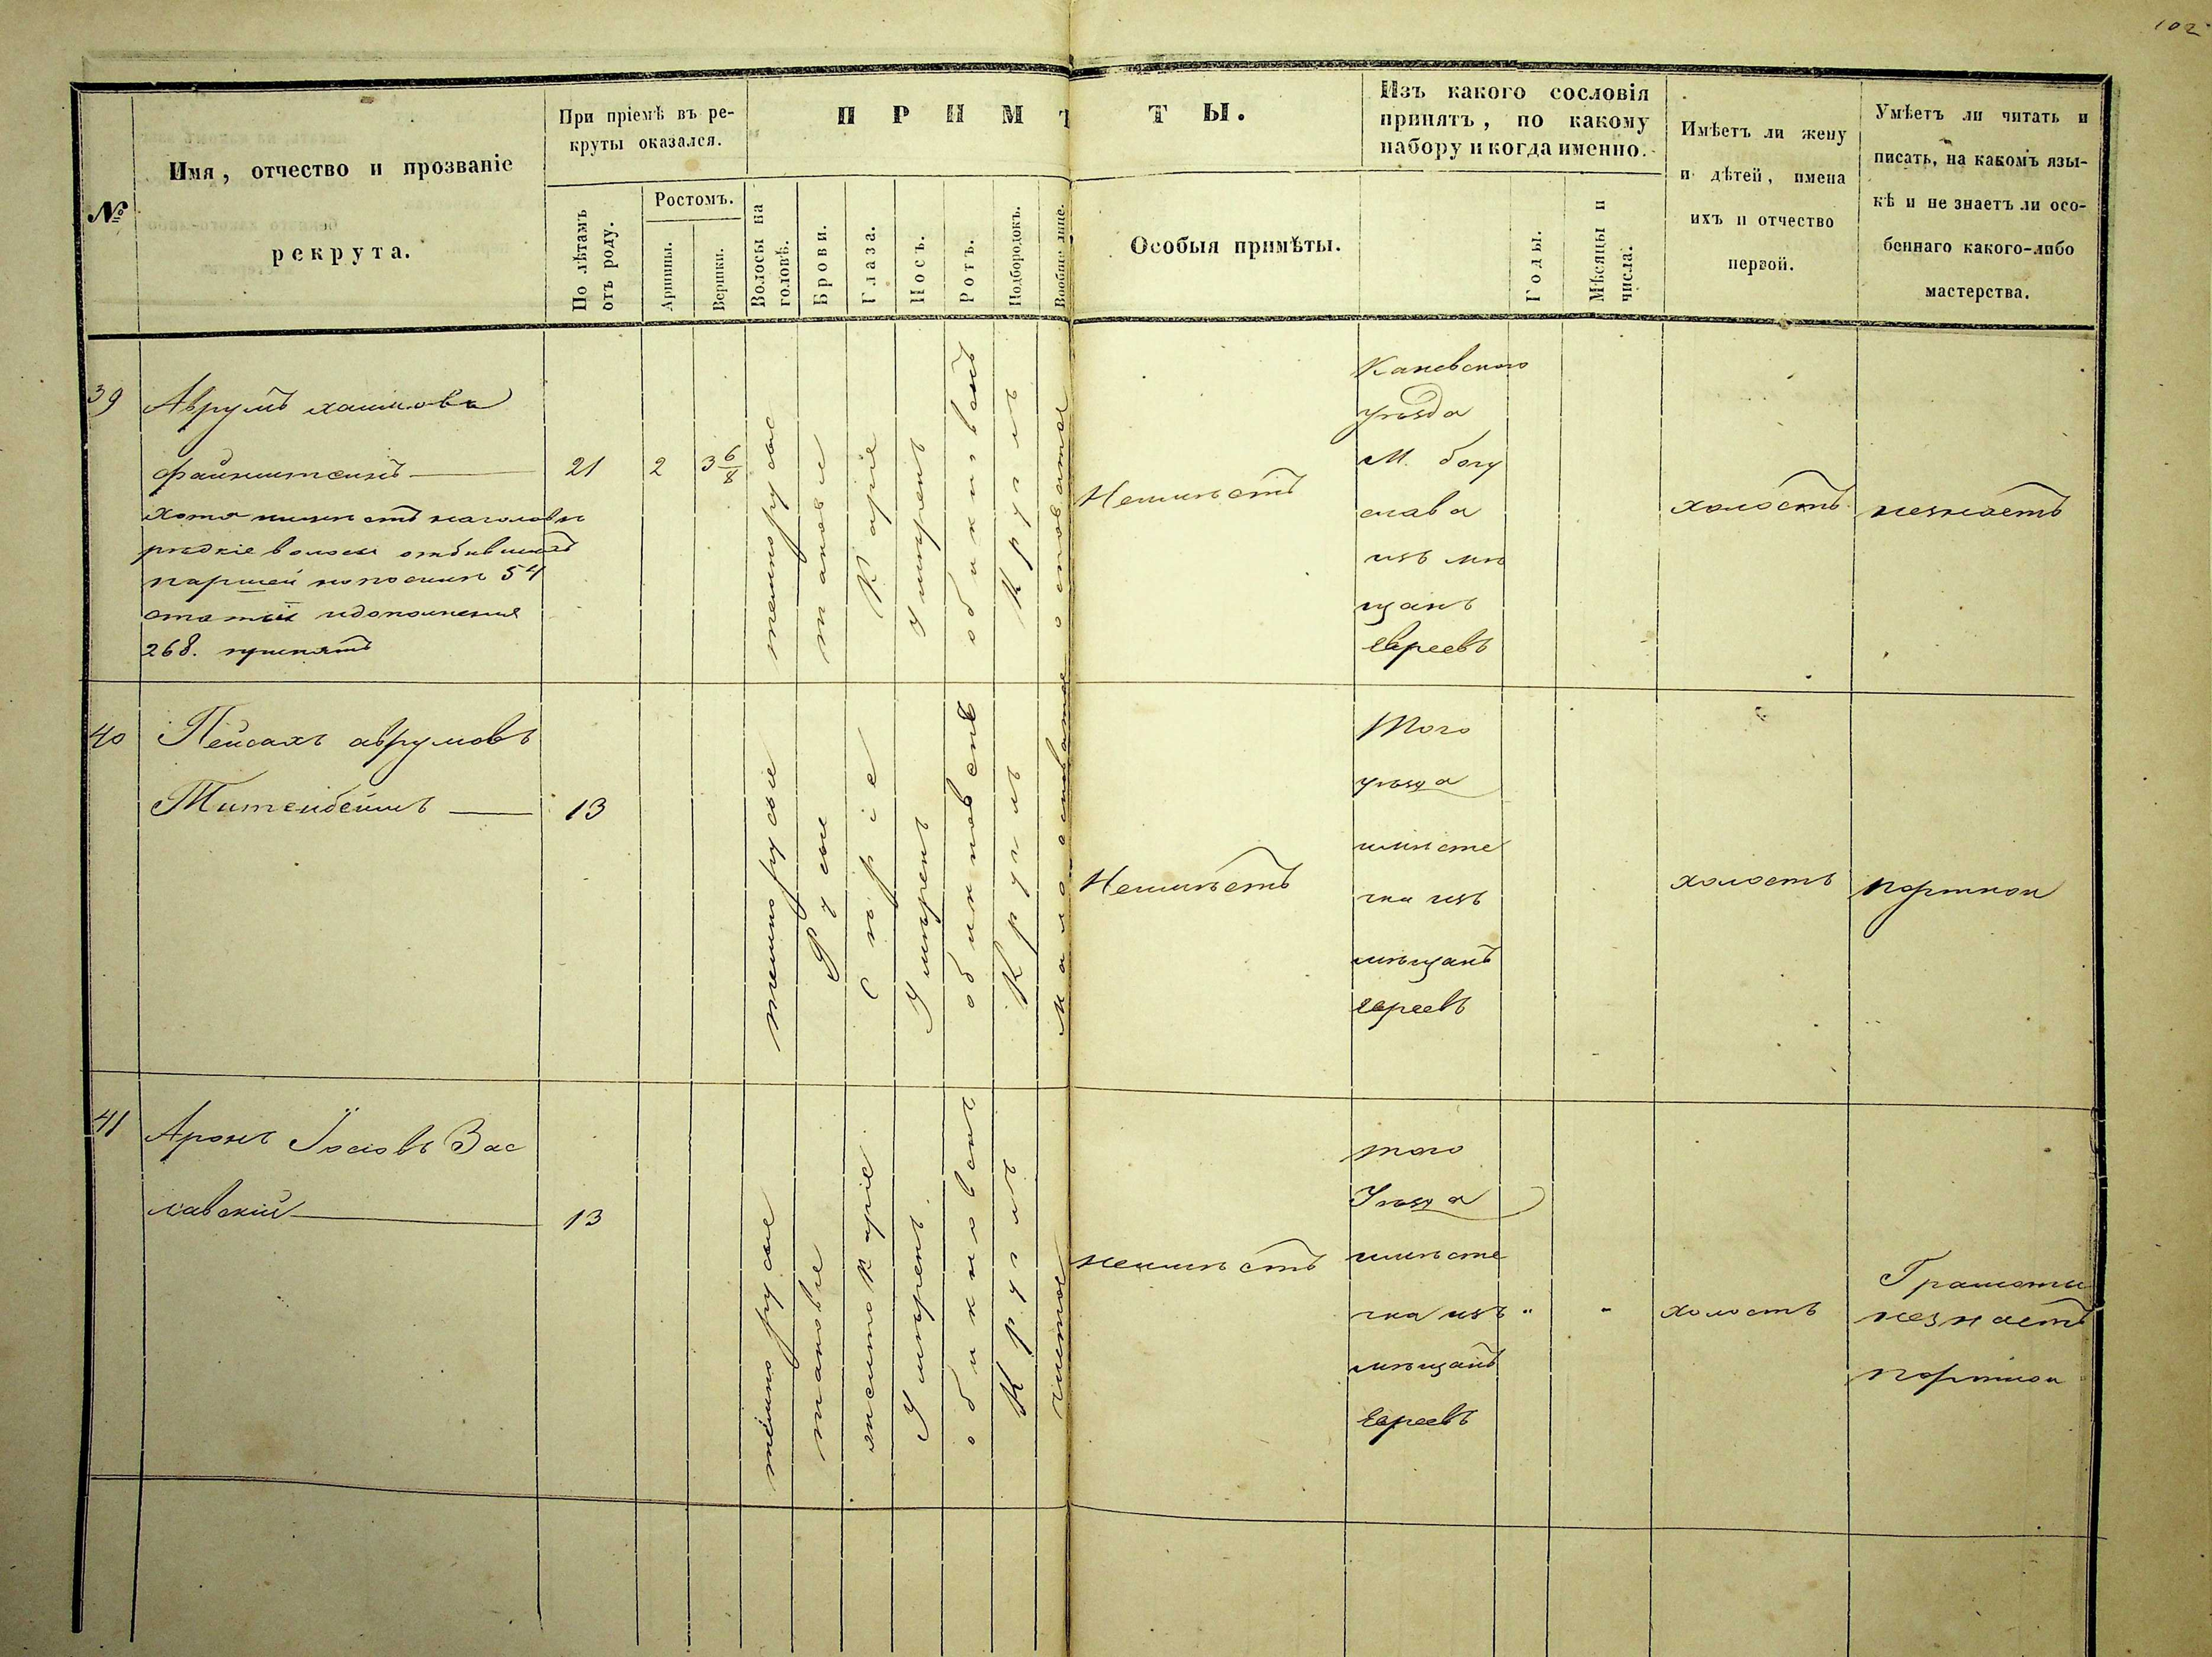 102
№
Имя, отчество и прозваніе
рекрута.
При пріемѣ въ ре-
круты оказался.
По лѣтамъ
отъ роду.
Ростомъ.
Аршины.
Вершки.
ПРИМѢТЫ.
Волосы на
головѣ.
Брови.
Глаза.
Носъ.
Ротъ.
Подбородокъ.
Вообще лице.
Особыя примѣты.
Изъ какого сословія
принятъ, по какому
набору и когда именно.
Годы.
Мѣсяцы и
числа.
Имѣетъ ли жену
и дѣтей, имена
ихъ и отчество
первой.
Умѣетъ ли читать и
писать, на какомъ язы-
кѣ и не знаетъ ли осо-
беннаго какого-либо
мастерства.
39
Аврумъ хаимовъ
файнштеинъ
хотя имѣетъ наголовѣ
рѣдкіе волосы отбывшей
паршей но посилѣ 54
статьи идополненія
268. принятъ
21
2
3 6/8
темнорусые
таковые
Каріе
умѣренъ
обикновенъ
Круглъ
осповатое
Неимѣетъ
Каневского
уѣзда
М. богу
слава
изъ мѣ
щанъ
евреевъ
холостъ
незнаетъ
40
Пейсахъ аврумовъ
Титенбеимъ
13
темнорусые
Русые
Сѣріе
Умѣренъ
обикновенъ
Круглъ
Малоосповатое
Неимѣетъ
Того
уѣзда
имѣсте
чка изъ
мѣщанъ
евреевъ
холостъ
портной
41
Аронъ Іосіовъ Зас
лавскій
13
темнорусые
таковые
ясно Каріе
Умѣренъ.
обикновенъ
Круглъ
чистое
неимѣетъ
того
Уѣзда
имѣсте
чка изъ
мѣщанъ
Евреевъ
"
"
холостъ
Грамоты
незнаетъ
портной